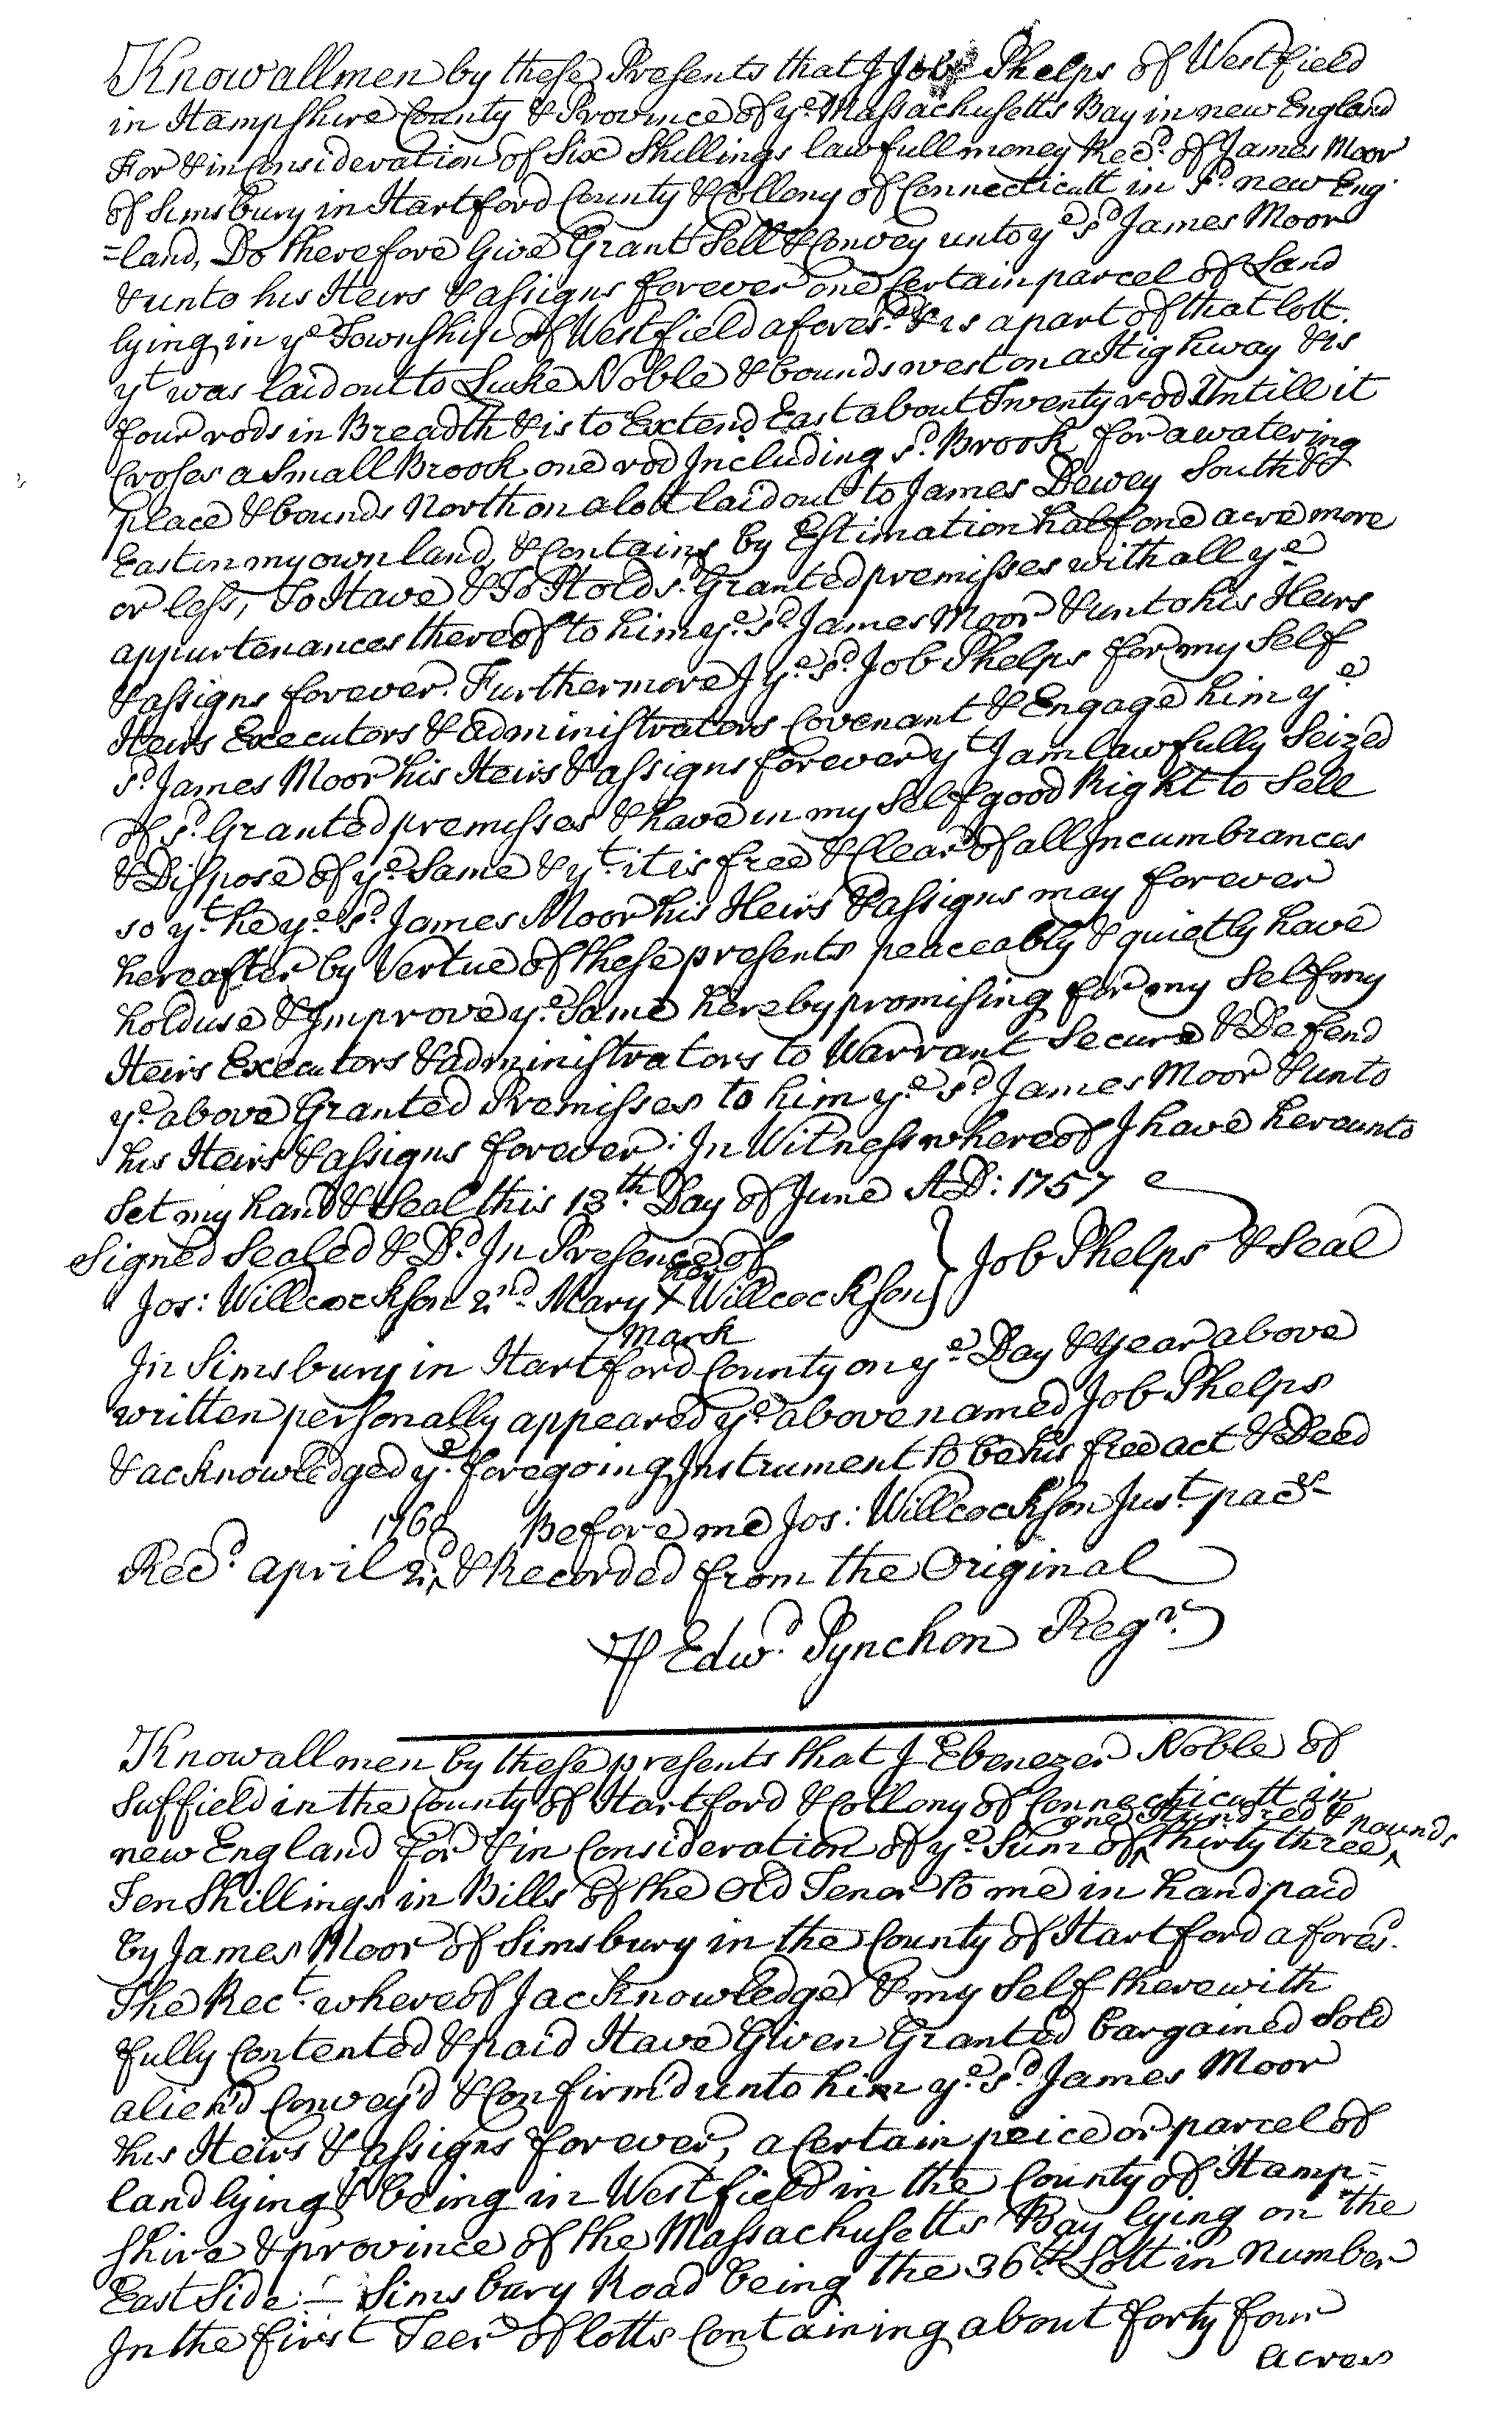 Know all men by these Presents that I Job Phelps of Westfield
in Hampshire County & Province of ye Massachusetts Bay in new England
For & in Consideration of Six Shillings lawfull money Recd. of James Moor
of Simsbury in Hartford County & Collony of Connecticutt in sd. new Eng
=land, Do therefore Give Grant Sell & Convey unto ye sd James Moor
& unto his Heirs & assigns forever one certain parcel of Land
lying in ye Township of Westfield aforesd. & is a part of that lott.
yt was laid out to Luke Noble & bounds west on a Highway & is
four rods in Breadth & is to Extend East about Twenty rods Untill it
Croses a small Brook one rod Including sd. Brook for a watering
place & bounds North on a lott laid out to James Dewey South &
East in my own land, & Contains by Estimation half one acre more
or less, To Have & To Hold sd. Granted premisses with all ye
appurtenances thereof to him ye. sd. James Moor & unto his Heirs
& assigns forever. Furthermore I ye. sd. Job Phelps for my Self
Heirs Executors & administrators Covenant & Engage him ye
sd. James Moor his Heirs & assigns forever yt I am lawfully Seized
of sd. Granted premisses & have in my Self good Right to Sell
& Dispose of ye. Same & yt. it is free & Clear of all Incumbrances
so yt. he ye. sd. James Moor his Heirs & assigns may forever
hereafter by Vertue of these presents peaceably & quietly have
hold use & Improve ye. Same hereby promising for my Self my
Heirs Executors & administrators to Warrant Secure & Defend
ye. above Granted Premisses to him ye. sd. James Moor & unto
his Heirs & assigns forever: In Witness whereof I have herunto
Set my hand & Seal this 13th. Day of June AD: 1757
Signed Sealed & Dd. In Presence of } Job Phelps & Seal
her
Jos: Willcockson 2nd. Mary X Willcockson
mark
In Simsbury in Hartford County on ye. Day & Year above
written personally appeared ye. above named Job Phelps
& acknowledged ye. foregoing Instrument to be his free act & Deed
Before me Jos: Willcockson Just. paces
1760
Recd. april 2d. & Recorded from the Original
Edwd. Pynchon Regr.
Know all men by these presents that I Ebenezer Noble of
Suffield in the County of Hartford & Collony of Connecticutt in
one Hundred & pounds
new England for & in Consideration of ye. Sum of ‸ thirty three ‸
Ten Shillings in Bills of the Old Tenor to me in hand paid
by James Moor of Simsbury in the County of Hartford aforesd.
The Rect. whereof I acknowledge & my Self therewith
fully Contented & paid Have Given Granted bargained Sold
aliend Convey'd & Confirm'd unto him ye. sd. James Moor
his Heirs & assigns forever, a Certain peice or parcel of
land lying & being in Westfield in the County of Hamp=
shire & province of the Massachusetts Bay lying on the
East Side Simsbury Road being the 36th. Lott in Number
In the first Teer of lotts Containing about forty four
acres